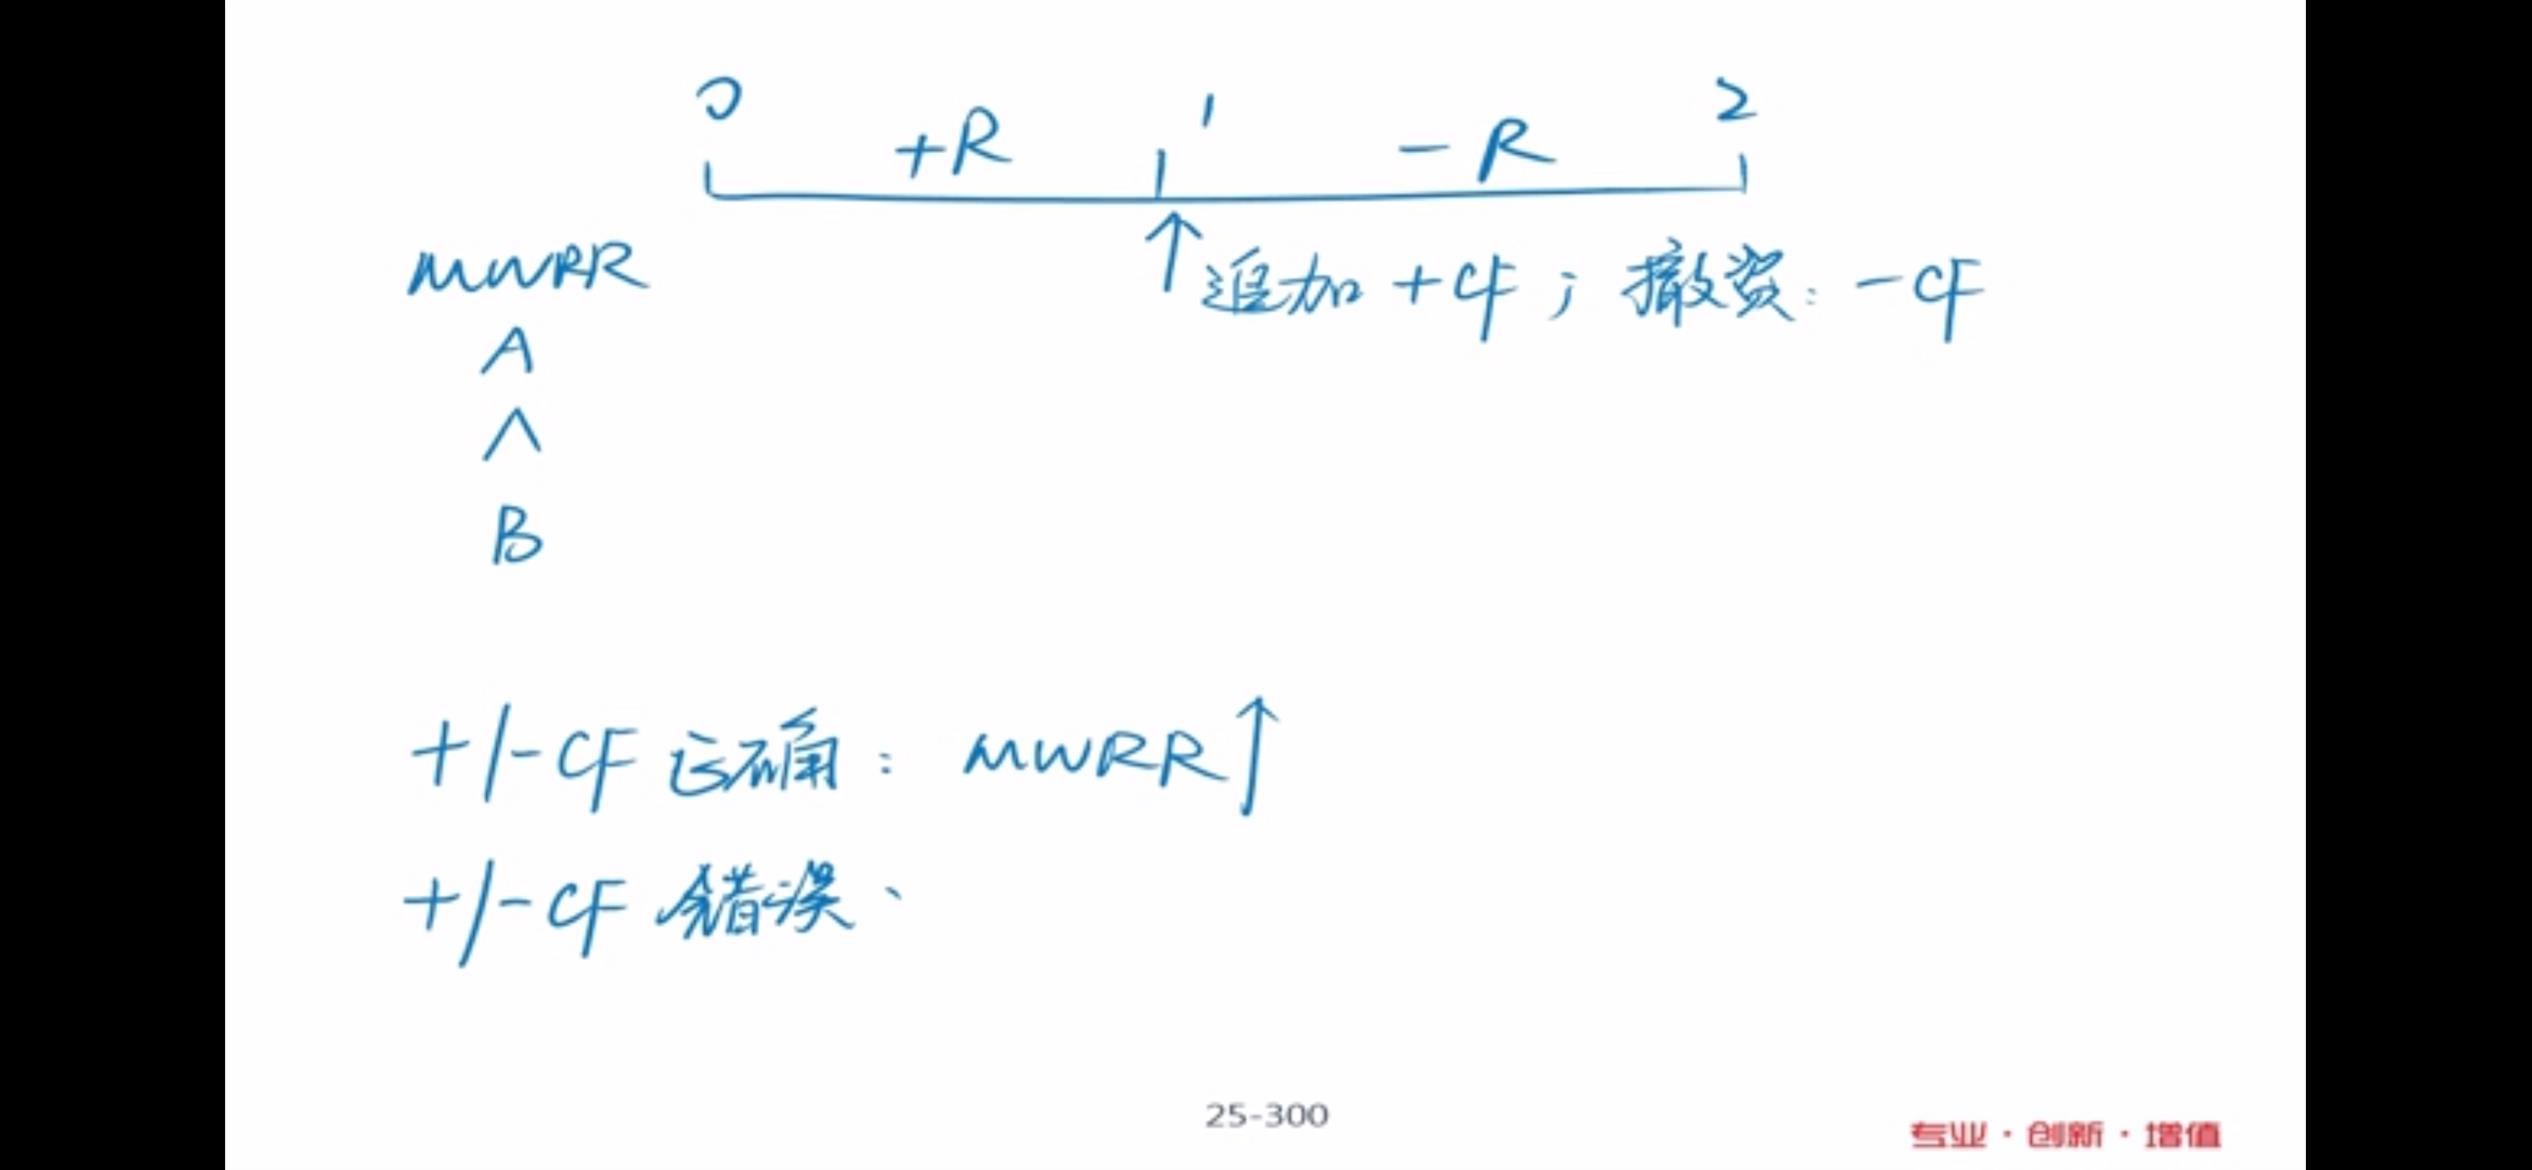 0 1 2
+R -R
MWRR ↑ 追加 +CF ; 撤资: -CF
A
∧
B
+/-CF 正确: MWRR↑
+/-CF 错误、
25-300
专业·创新·增值